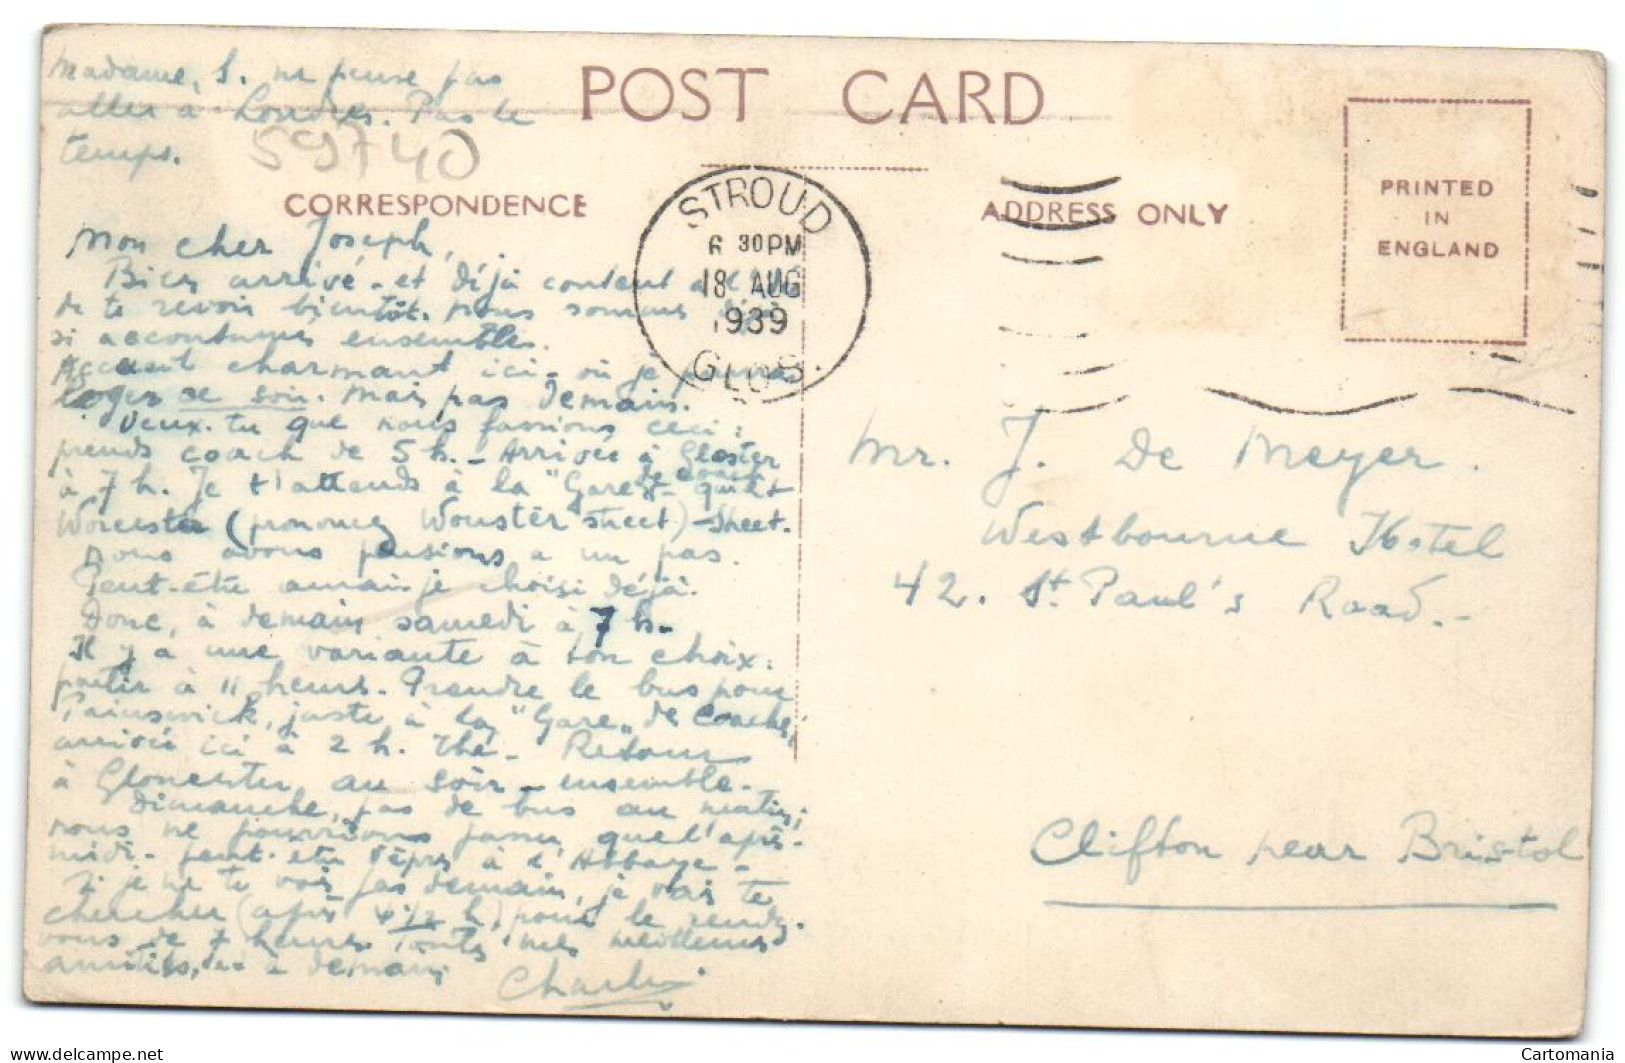 Madame, S. ne pense pas
aller à Londres. Pas le
temps.
59740
POST CARD
CORRESPONDENCE
ADDRESS ONLY
PRINTED
IN
ENGLAND
STROUD
6 30PM
18 AUG
1939
GLOS.
Mon cher Joseph,
Bien arrivé - et déjà content à l'
de te revoir bientôt. Nous sommes
si accoutumés ensembles.
Accueil charmant ici - où je pourrai
loger ce soir. Mais pas demain.
Veux-tu que nous fassions ceci:
prends coach de 5 h. - Arrivée à Gloster
à 7 h. Je t'attends à la "Gare de coach
Worcester (prononcez Wouster street) - Street.
Nous avons pensions à un pas.
Peut-être aurai-je choisi déjà.
Donc, à demain samedi à 7 h. -
Il y a une variante à ton choix:
partir à 11 heures. Prendre le bus pour
Painswick, juste à la "Gare" de Coache,
arrivée ici à 2 h. Thé - Retour
à Gloucester au soir - ensemble.
Dimanche, pas de bus au matin;
nous ne pourrions passer que l'après-
midi - peut-être Vêpres à l'Abbaye -
Si je ne te vois pas demain, je vais te
chercher (après 4 1/2 h) pour le rendez-
vous de 7 heures. Toutes mes meilleures
amitiés, et à demain
Charles
Mr. J. De Meyer.
Westbourne Hotel
42. St. Paul's Road. -
Clifton near Bristol
Cartomania